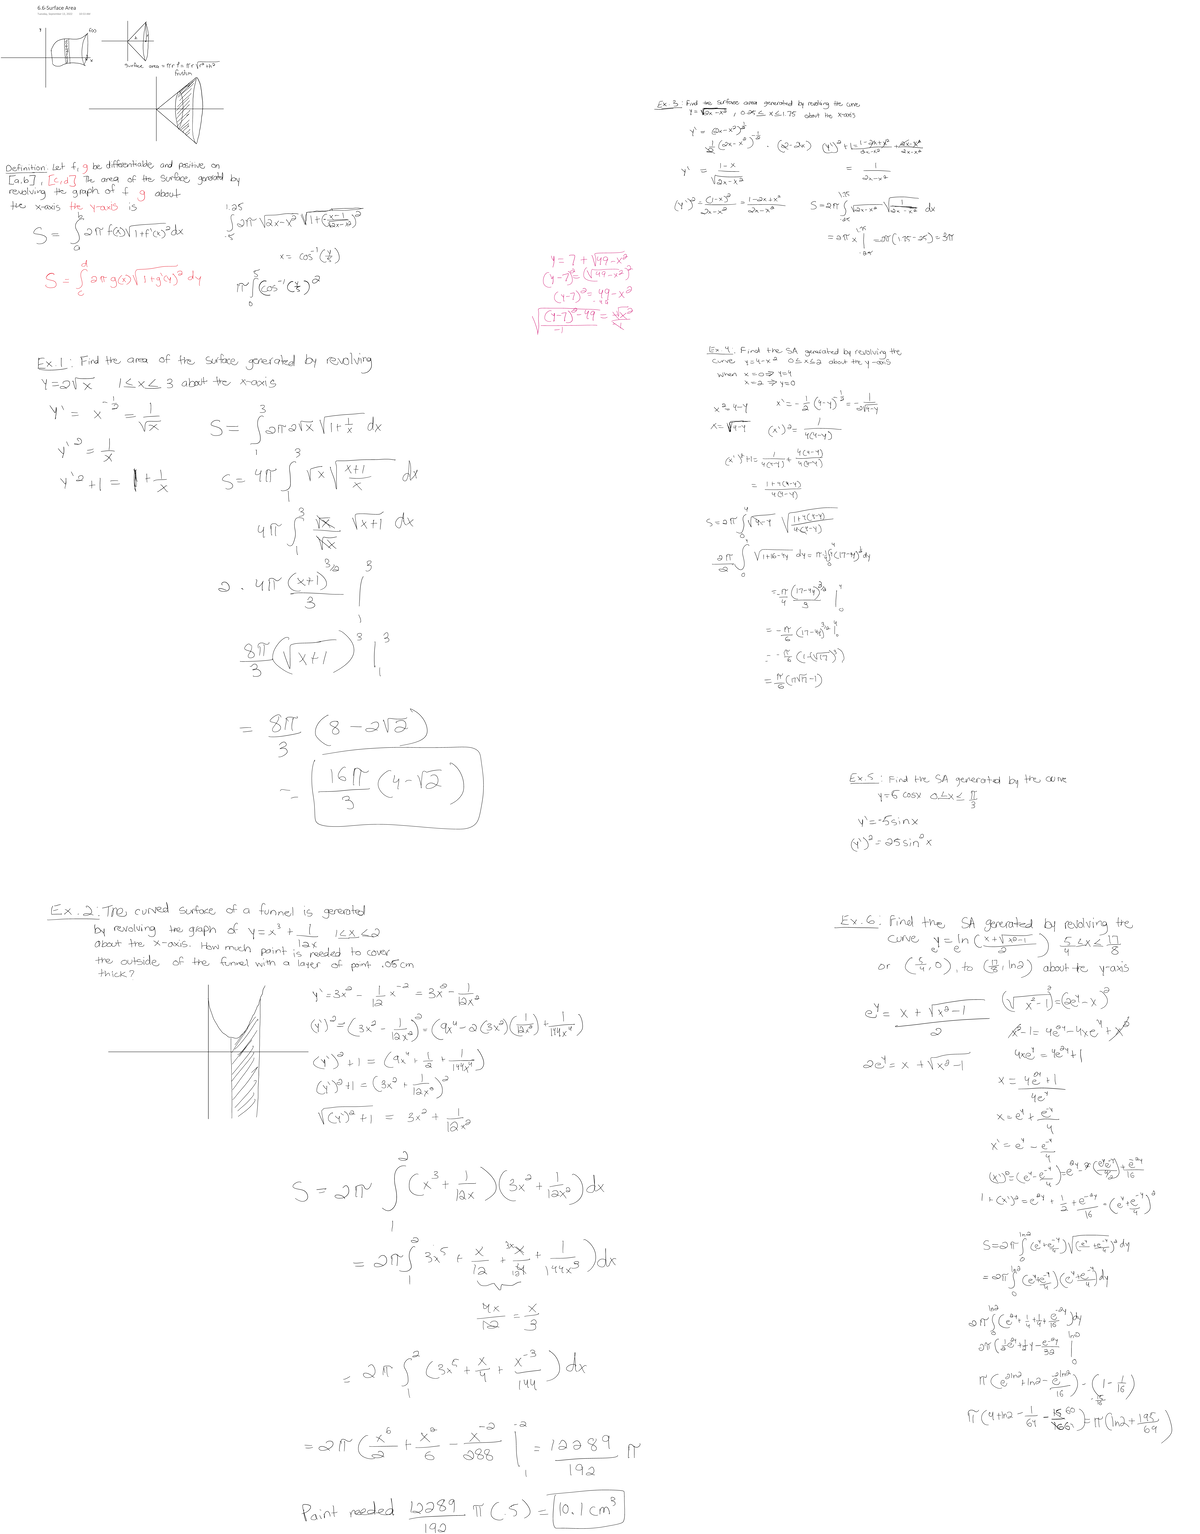 6.6-Surface Area
y
f(x)
x
Surface area = πrl = πr√(r²+h²)
frustum
Definition: Let f, g be differentiable and positive on
[a,b], [c,d] The area of the surface generated by
revolving the graph of f g about
the x-axis the y-axis is
S = ∫_a^b 2πf(x)√(1+f'(x)²) dx
S = ∫_c^d 2πg(x)√(1+g'(y)²) dy
∫_.5^1.25 2π√(2x-x²) √(1+((x-1)/√(2x-x²))²)
x = cos⁻¹(y/5)
π∫_0^5 (cos⁻¹(y/5))²
y = 7 + √(49-x²)
(y-7)² = (√(49-x²))²
(y-7)² = 49-x²
-49
√(((y-7)²-49)/-1) = √(-x²/-1)
Ex.1: Find the area of the surface generated by revolving
y=2√x 1≤x≤3 about the x-axis
y' = x^(-1/2) = 1/√x
y'² = 1/x
y'²+1 = 1+1/x
S = ∫_1^3 2π2√x √(1+1/x) dx
S = 4π∫_1^3 √x √((x+1)/x) dx
4π∫_1^3 √x/√x √(x+1) dx
2 · 4π (x+1)^(3/2)/3 |_1^3
8π/3 (√(x+1))³ |_1^3
= 8π/3 (8-2√2)
= 16π/3 (4-√2)
Ex.2: The curved surface of a funnel is generated
by revolving the graph of y=x³+1/12x 1≤x≤2
about the x-axis. How much paint is needed to cover
the outside of the funnel with a layer of paint .05cm
thick?
y' = 3x² - 1/12 x⁻² = 3x² - 1/12x²
(y')² = (3x² - 1/12x²)² = (9x⁴ - 2(3x²)(1/12x²) + 1/144x⁴)
(y')²+1 = (9x⁴ + 1/2 + 1/144x⁴)
(y')²+1 = (3x² + 1/12x²)²
√((y')²+1) = 3x² + 1/12x²
S = 2π ∫_1^2 (x³+1/12x)(3x²+1/12x²) dx
= 2π∫_1^2 3x⁵ + x/12 + 3x/12 + 1/144x³) dx
4x/12 = x/3
= 2π∫_1^2 (3x⁵ + x/4 + x⁻³/144) dx
= 2π(x⁶/2 + x²/6 - x⁻²/288 |_1^2 = 12289/192 π
Paint needed 12289/192 π(.5) = 10.1 cm³
Ex.3: Find the surface area generated by revolving the curve
y=√(2x-x²), 0.25≤x≤1.75 about the x-axis
y' = (2x-x²)^(1/2)
1/2 (2x-x²)^(-1/2) · (2-2x)
(y')²+1 = (1-2x+x²)/(2x-x²) + (2x-x²)/(2x-x²)
y' = (1-x)/√(2x-x²)
= 1/(2x-x²)
(y')² = (1-x)²/(2x-x²) = (1-2x+x²)/(2x-x²)
S = 2π∫_.25^1.75 √(2x-x²) √(1/(2x-x²)) dx
= 2πx |_.25^1.75 = 2π(1.75-.25) = 3π
Ex.4: Find the SA generated by revolving the
curve y=4-x² 0≤x≤2 about the y-axis
when x=0 ⇒ y=4
x=2 ⇒ y=0
x²=4-y
x=√(4-y)
x' = -1/2 (4-y)^(-1/2) = -1/(2√(4-y))
(x')² = 1/(4(4-y))
(x')²+1 = 1/(4(4-y)) + 4(4-y)/(4(4-y))
= (1+4(4-y))/(4(4-y))
S = 2π∫_0^4 √(4-y) √((1+4(4-y))/(4(4-y)))
2π/2 ∫_0^4 √(1+16-4y) dy = π∫_0^4 (17-4y)^(1/2) dy
= -π/4 (17-4y)^(3/2)/3 |_0^4
= -π/6 (17-4y)^(3/2) |_0^4
= -π/6 (1-(√17)³)
= π/6 (17√17-1)
Ex.5: Find the SA generated by the curve
y=5cosx 0≤x≤π/3
y' = -5sinx
(y')² = 25sin²x
Ex.6: Find the SA generated by revolving the
curve y = ln((x+√(x²-1))/2) 5/4≤x≤17/8
or (5/4, 0), to (17/8, ln2) about the y-axis
e^y = (x+√(x²-1))/2
2e^y = x+√(x²-1)
(√(x²-1))² = (2e^y-x)²
x²-1 = 4e^2y-4xe^y+x²
4xe^y = 4e^2y+1
x = (4e^2y+1)/4e^y
x = e^y + e^-y/4
x' = e^y - e^-y/4
(x')² = (e^y - e^-y/4)² = e^2y - 2(e^y e^-y/4) + e^-2y/16
1+(x')² = e^2y + 1/2 + e^-2y/16 = (e^y + e^-y/4)²
S = 2π∫_0^ln2 (e^y+e^-y/4)√(e^y+e^-y/4)² dy
= 2π∫_0^ln2 (e^y+e^-y/4)(e^y+e^-y/4) dy
2π∫_0^ln2 (e^2y+1/4+1/4+e^-2y/16) dy
2π(1/2 e^2y+1/2 y-e^-2y/32 |_0^ln2
π(e^2ln2+ln2-e^-2ln2/16) - (1-1/16)
π(4+ln2-1/64-60/64) = π(ln2+195/64)